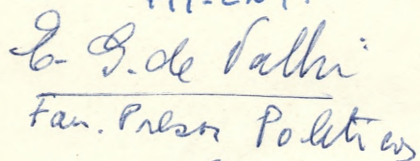 E. G. de Valli
Fam. Presos Politicos